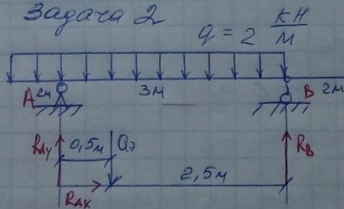 Задача 2
q = 2 кН/м
A 2м 3м B 2м
RAy 0,5м Qэ RB
RAx 2,5м